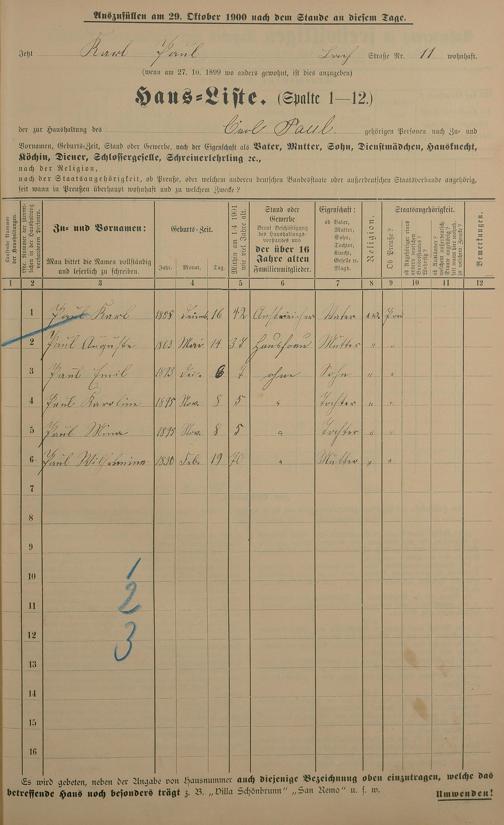 Auszufüllen am 29. Oktober 1900 nach dem Stande an diesem Tage.
Jetzt Karl Paul Straße Nr. 11 wohnhaft.
(wenn am 27. 10. 1899 wo anders gewohnt, ist dies anzugeben)
Haus-Liste. (Spalte 1—12.)
der zur Haushaltung des Carl Paul gehörigen Personen nach Zu- und
Vornamen, Geburts-Zeit, Stand oder Gewerbe, nach der Eigenschaft als Vater, Mutter, Sohn, Dienstmädchen, Hausknecht,
Köchin, Diener, Schlossergeselle, Schreinerlehrling ec.,
nach der Religion,
nach der Staatsangehörigkeit, ob Preuße, oder welchem anderen deutschen Bundesstaate oder außerdeutschen Staatsverbande angehörig,
seit wann in Preußen überhaupt wohnhaft und zu welchem Zwecke?
Zu- und Vornamen:
Man bittet die Namen vollständig
und leserlich zu schreiben.
Geburts-Zeit.
Jahr. Monat. Tag.
Mithin am 1/4 1901
wie viel Jahre alt.
Stand oder
Gewerbe
der über 16
Jahre alten
Familienmitglieder.
Eigenschaft:
ob Vater,
Mutter,
Sohn,
Tochter,
Knecht,
Geselle u.
Magd.
Religion.
Staatsangehörigkeit.
Ob Preuße?
Bemerkungen.
1 2 3 4 5 6 7 8 9 10 11 12
1 Paul Karl 1858 16 42 Anstreicher Vater
2 Paul Auguste 1863 Mai 14 37 Hausfrau Mutter " "
3 Paul Emil 6 7 ohne Sohn " "
4 Paul Karoline 1895 Nov. 8 5 " Tochter " "
5 Paul Mina 1895 Nov. 8 5 " Tochter " "
6 Paul Wilhelmine 1830 Feb. 19 70 " Mutter " "
7
8
9
10
11
12
13
14
15
16
1
2
3
Es wird gebeten, neben der Angabe von Hausnummer auch diejenige Bezeichnung oben einzutragen, welche das
betreffende Haus noch besonders trägt z. B. „Villa Schönbrunn" „San Remo" u. s. w. Umwenden!